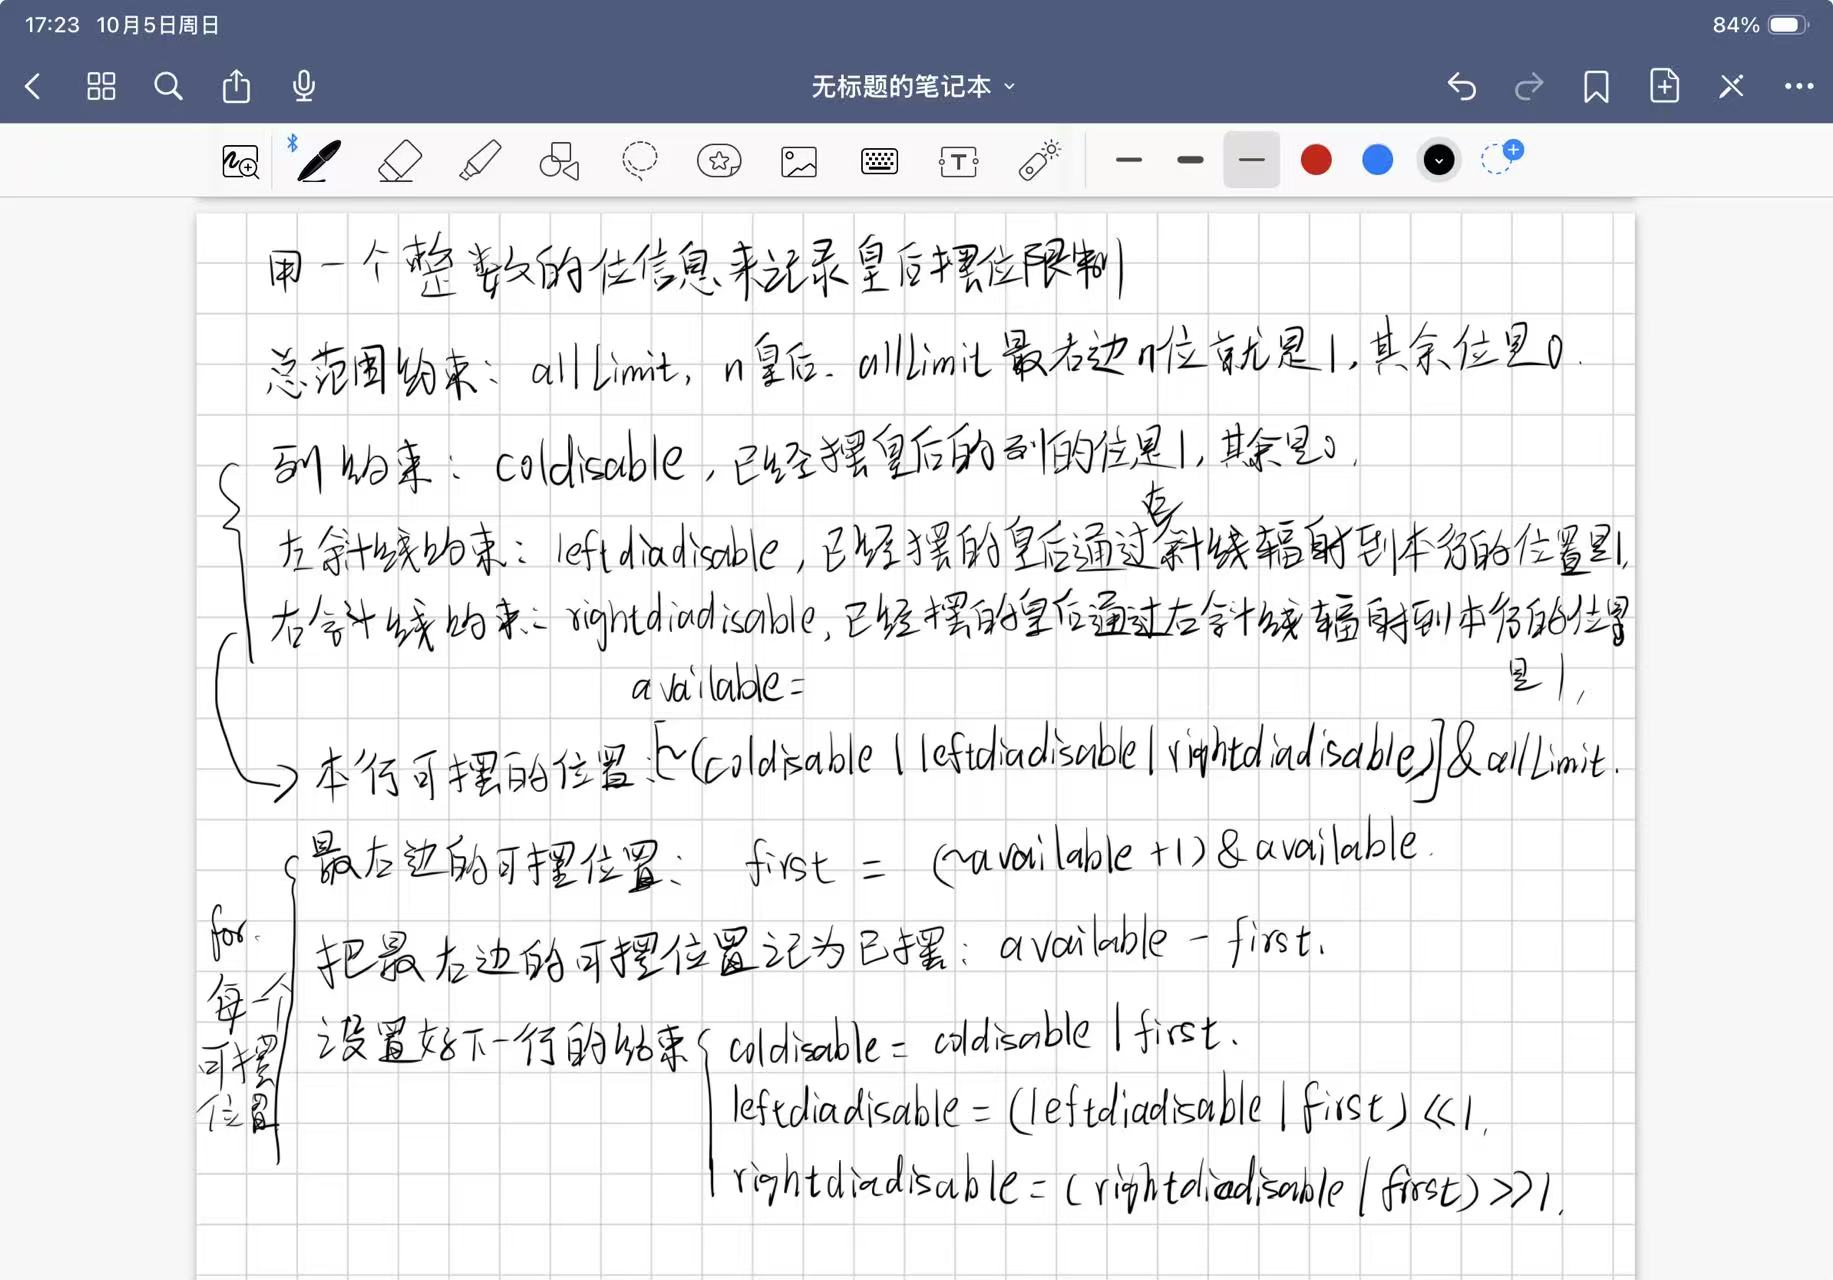 17:23 10月5日周日
84%
无标题的笔记本
用一个整数的位信息来记录皇后摆位限制
总范围约束：allLimit，n皇后. allLimit最右边n位就是1，其余位是0.
列约束：coldisable，已经摆皇后的列的位是1，其余是0.
左斜线约束：leftdiadisable，已经摆的皇后通过左斜线辐射到本行的位置是1,
右斜线约束：rightdiadisable，已经摆的皇后通过右斜线辐射到本行的位置
是1,
available=
本行可摆的位置：[~(coldisable | leftdiadisable | rightdiadisable)] & allLimit.
最右边的可摆位置： first = (~available +1) & available.
把最右边的可摆位置记为已摆：available - first.
for.
每一个
可摆
位置
设置好下一行的约束 { coldisable = coldisable | first.
leftdiadisable = (leftdiadisable | first) <<1,
rightdiadisable = (rightdiadisable | first) >>>1.